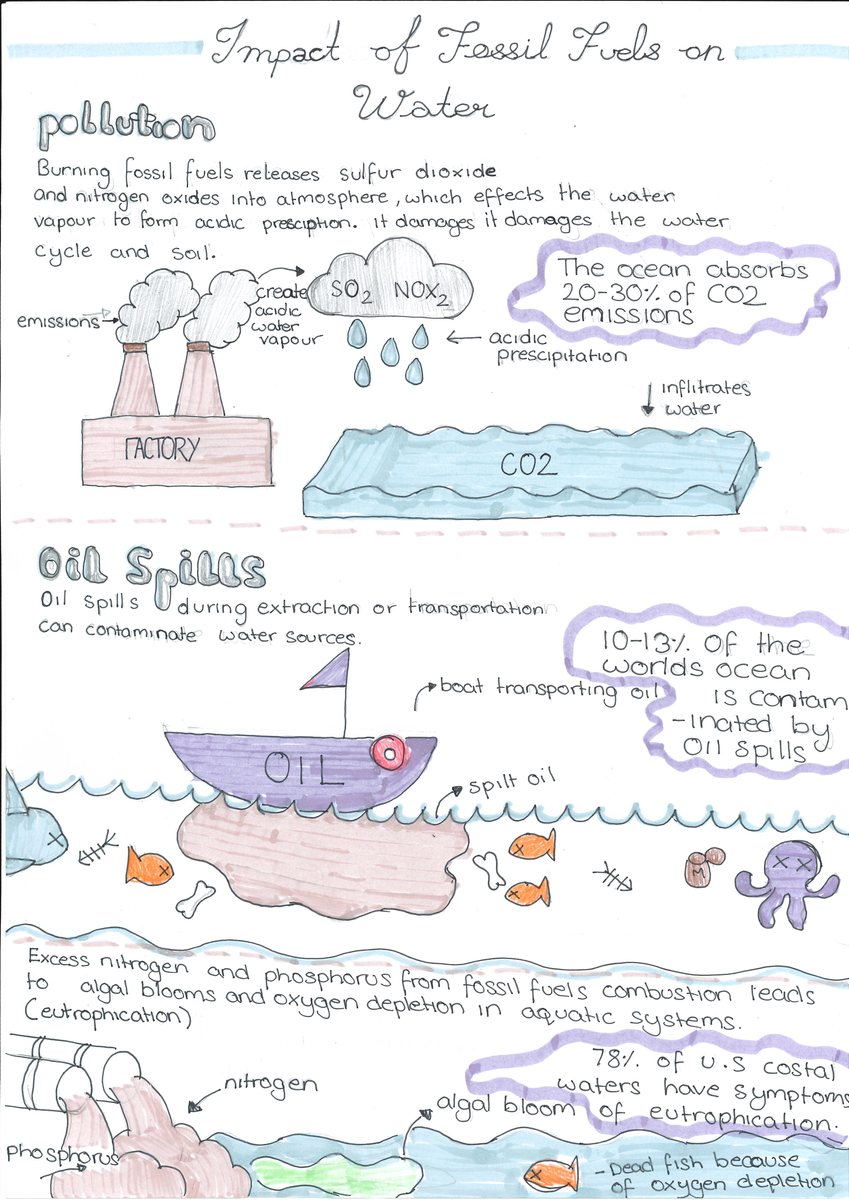 Impact of Fossil Fuels on
Water
pollution
Burning fossil fuels releases sulfur dioxide
and nitrogen oxides into atmosphere, which effects the water
vapour to form acidic presciption. it damages it damages the water
cycle and soil.
The ocean absorbs
20-30% of CO2
emissions
emissions
create
acidic
water
vapour
SO2 NOX2
acidic
prescipitation
inflitrates
water
FACTORY
CO2
Oil Spills
Oil spills during extraction or transportation
can contaminate water sources.
10-13% Of the
worlds ocean
is contam
-inated by
Oil spills
boat transporting oil
OIL
spilt oil
M
Excess nitrogen and phosphorus from fossil fuels combustion leads
to algal blooms and oxygen depletion in aquatic systems.
(eutrophication)
78% of U.S costal
waters have symptoms
of eutrophication.
nitrogen
algal bloom
phosphorus
-Dead fish because
of oxygen depletion